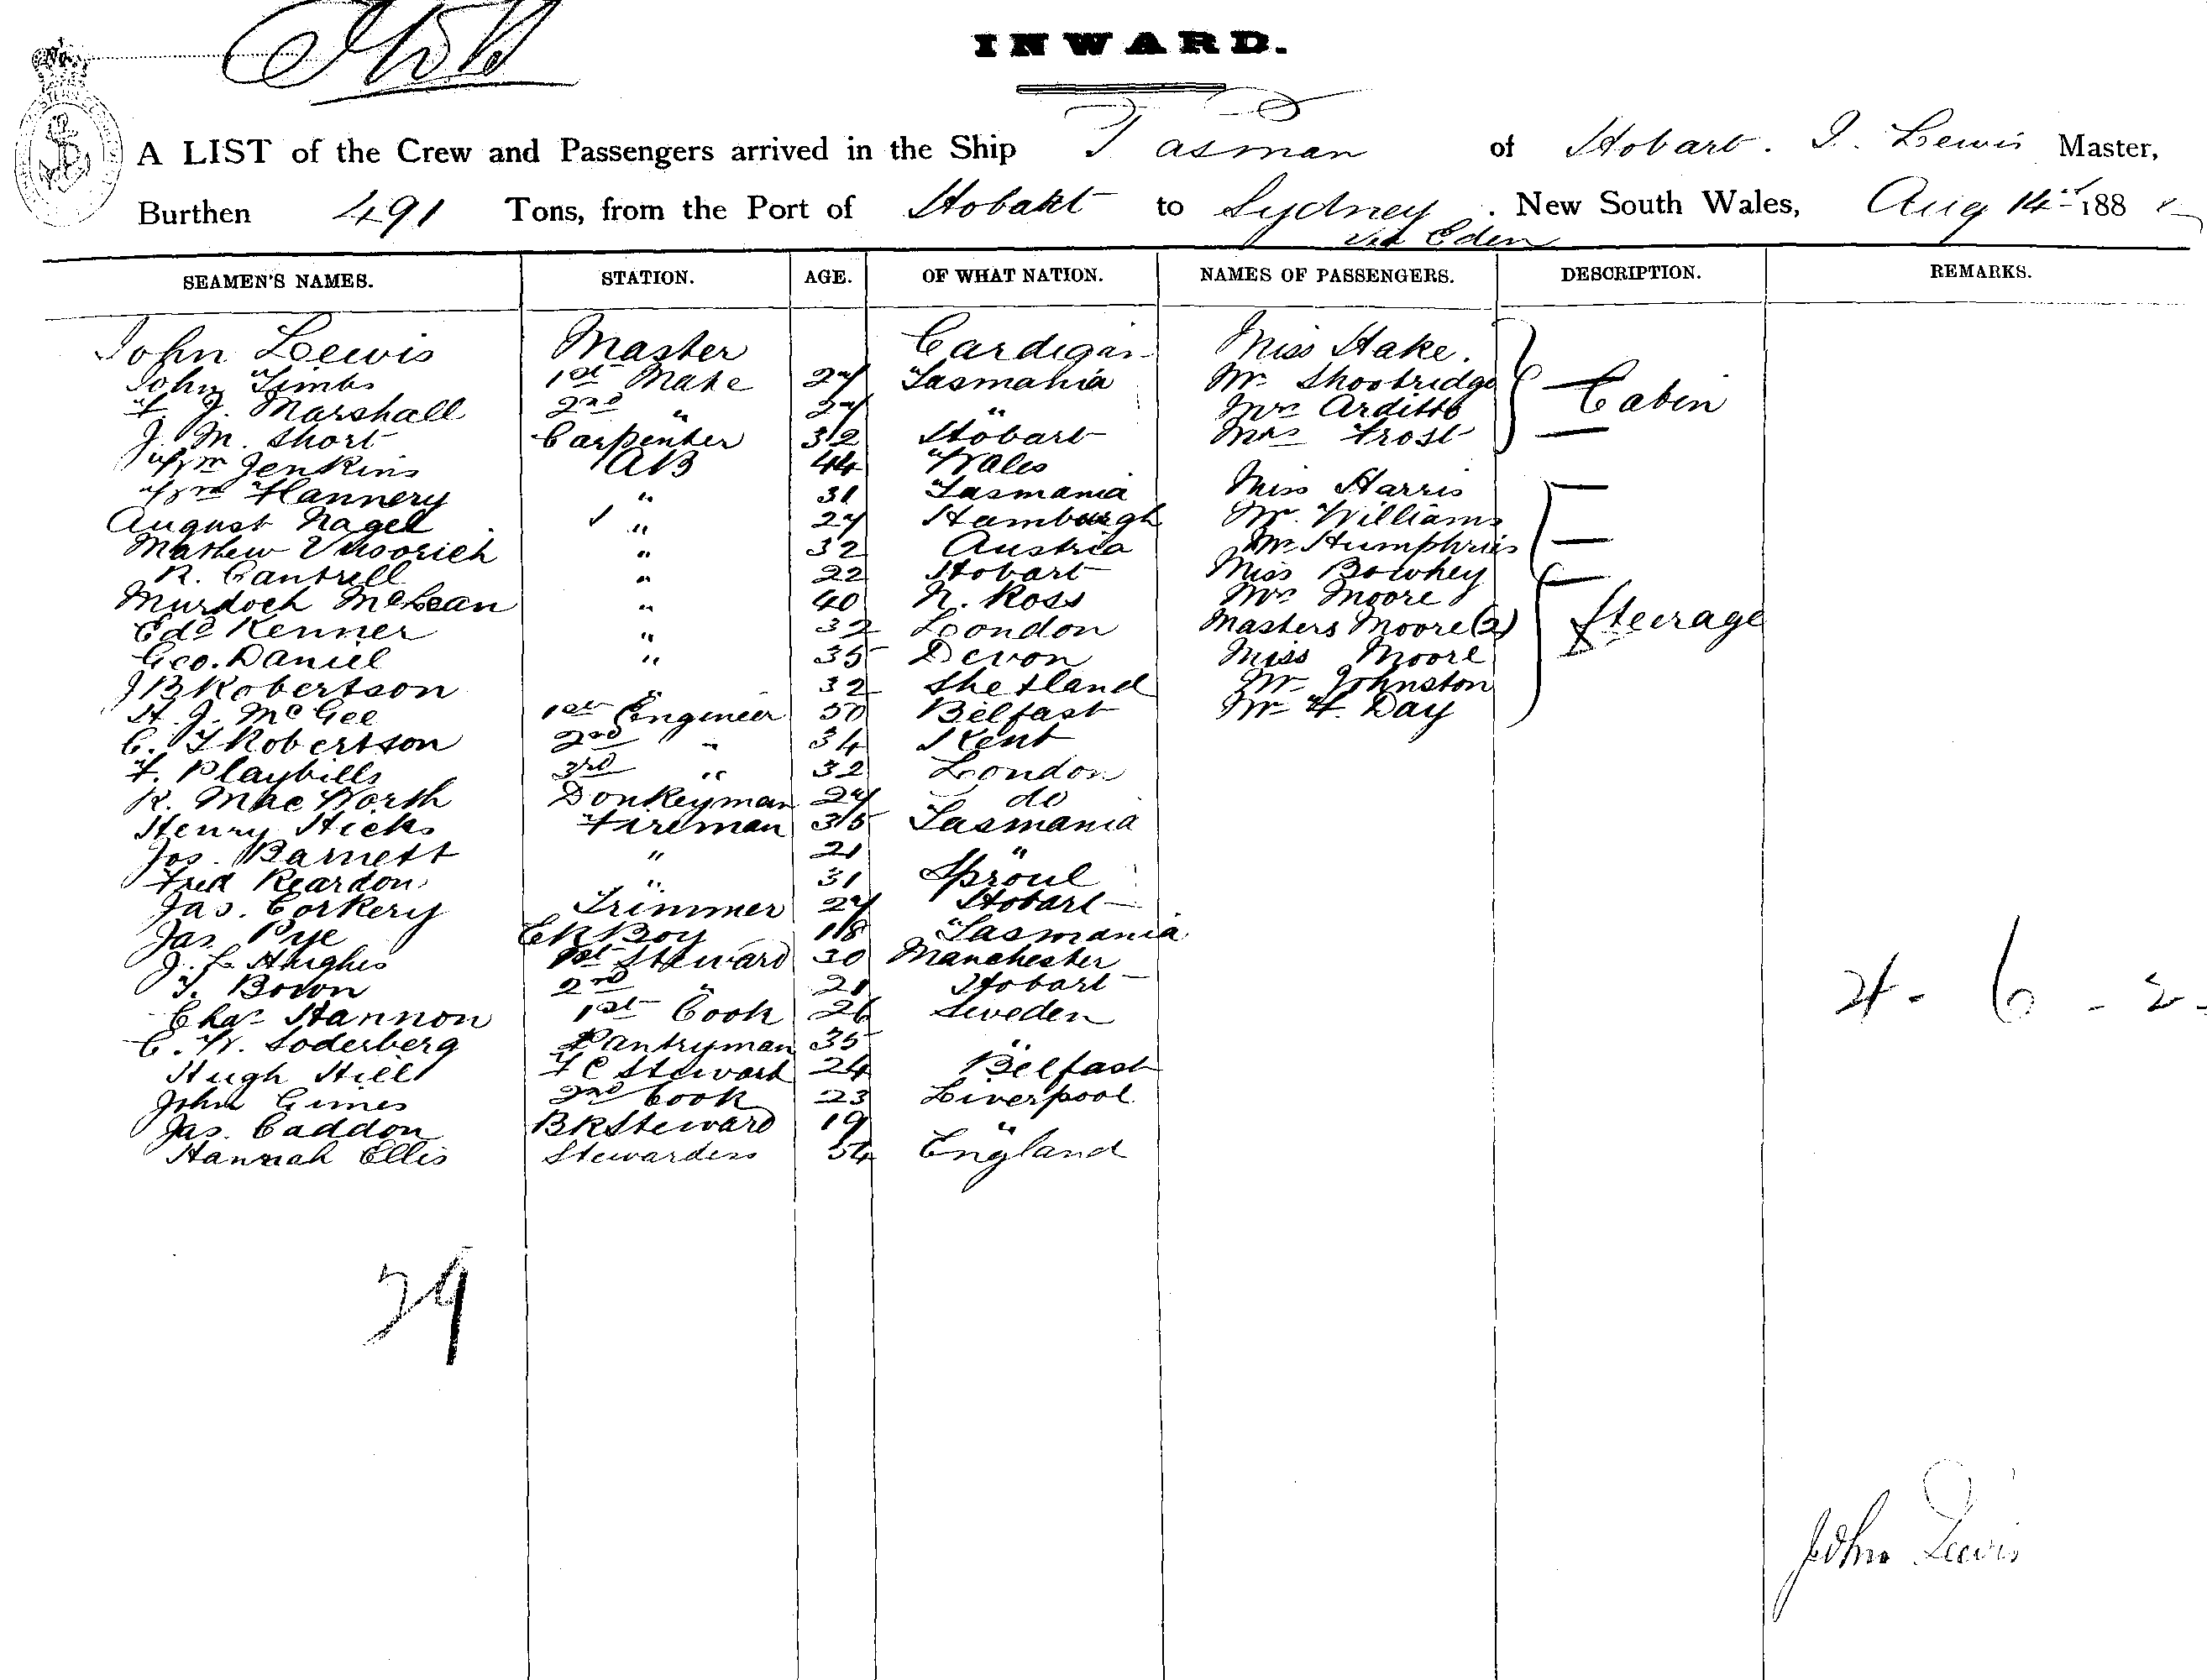 INWARD.
A LIST of the Crew and Passengers arrived in the Ship Tasman of Hobart. J. Lewis Master,
Burthen 491 Tons, from the Port of Hobart to Sydney. New South Wales, Aug 14th 188
via Eden
SEAMEN'S NAMES. STATION. AGE. OF WHAT NATION. NAMES OF PASSENGERS. DESCRIPTION. REMARKS.
John Lewis Master Cardigan Miss Hake.
John Timbs 1st Mate 27 Tasmania Mr Shoobridge
F. J. Marshall 2nd " 27 " Mrs Arditto Cabin
J. M. Short Carpenter 32 Hobart Mrs Frost
Wm Jenkins AB 44 Wales
Wm Flannery " 31 Tasmania Miss Harris
August Nagel " 27 Hamburgh Mr. Williams
Mathew " 32 Austria Mr Humphries
R. Cantrell " 22 Hobart Miss Bowhey
Murdoch McLean " 40 N. Ross Mrs Moore
Edd Kenner " 32 London Masters Moore (2) Steerage
Geo. Daniel " 35 Devon Miss Moore
J B Robertson " 32 Shetland Mr Johnston
H. J. McGee 1st Engineer 50 Belfast Mr F. Day
C. T Robertson 2nd " 34 Kent
F. Playbills 3rd " 32 London
R. MacWorth Donkeyman 27 do
Henry Hicks Fireman 35 Tasmania
Jos. Barnett " 21 "
Fred Reardon " 31 Sproul
Jas. Corkery Trimmer 27 Hobart
Jas Pye ER Boy 18 Tasmania
J. L. Hughes 1st Steward 30 Manchester
T. Bown 2nd " 21 Hobart
Chas Hannon 1st Cook 26 Sweden
C. W. Soderberg Pantryman 35 "
Hugh Hill F C Steward 24 Belfast
John Gimes 2nd Cook 23 Liverpool
Jas. Caddon BR Steward 19 "
Hannah Ellis Stewardess 54 England
4 - 6 - 2 -
29
John Lewis